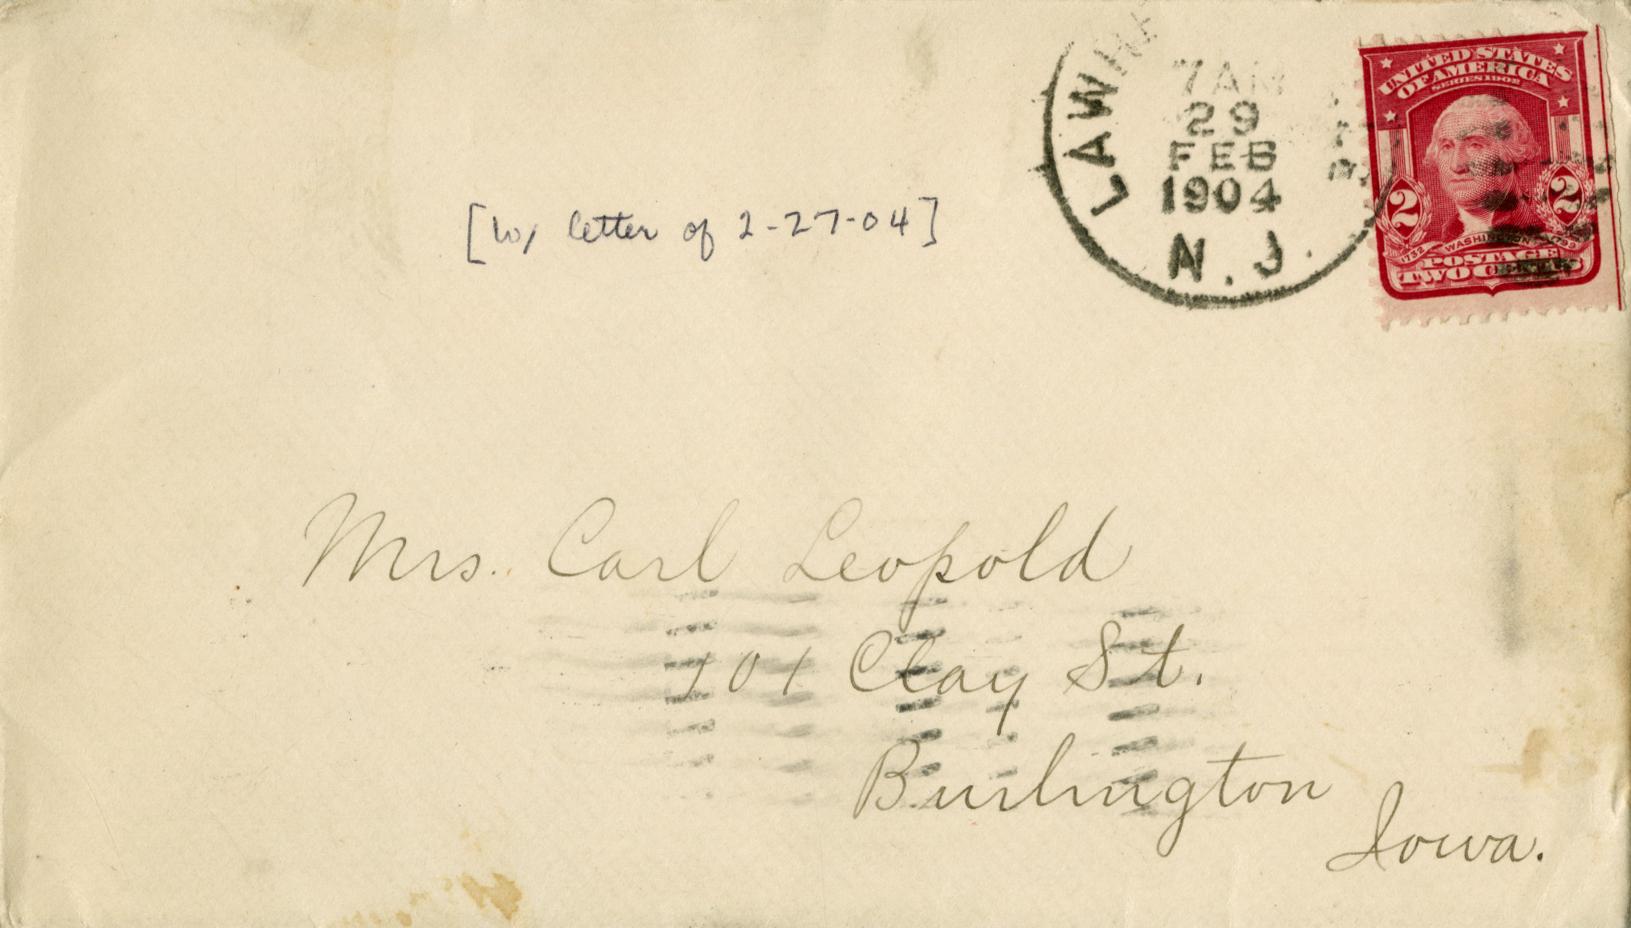 7 AM
29
FEB
1904
N. J.
UNITED STATES
OF AMERICA
SERIES 1902
2 2
1732 WASHINGTON 1799
POSTAGE
TWO CENTS
[w/ letter of 2-27-04]
Mrs. Carl Leopold
101 Clay St.
Burlington
Iowa.